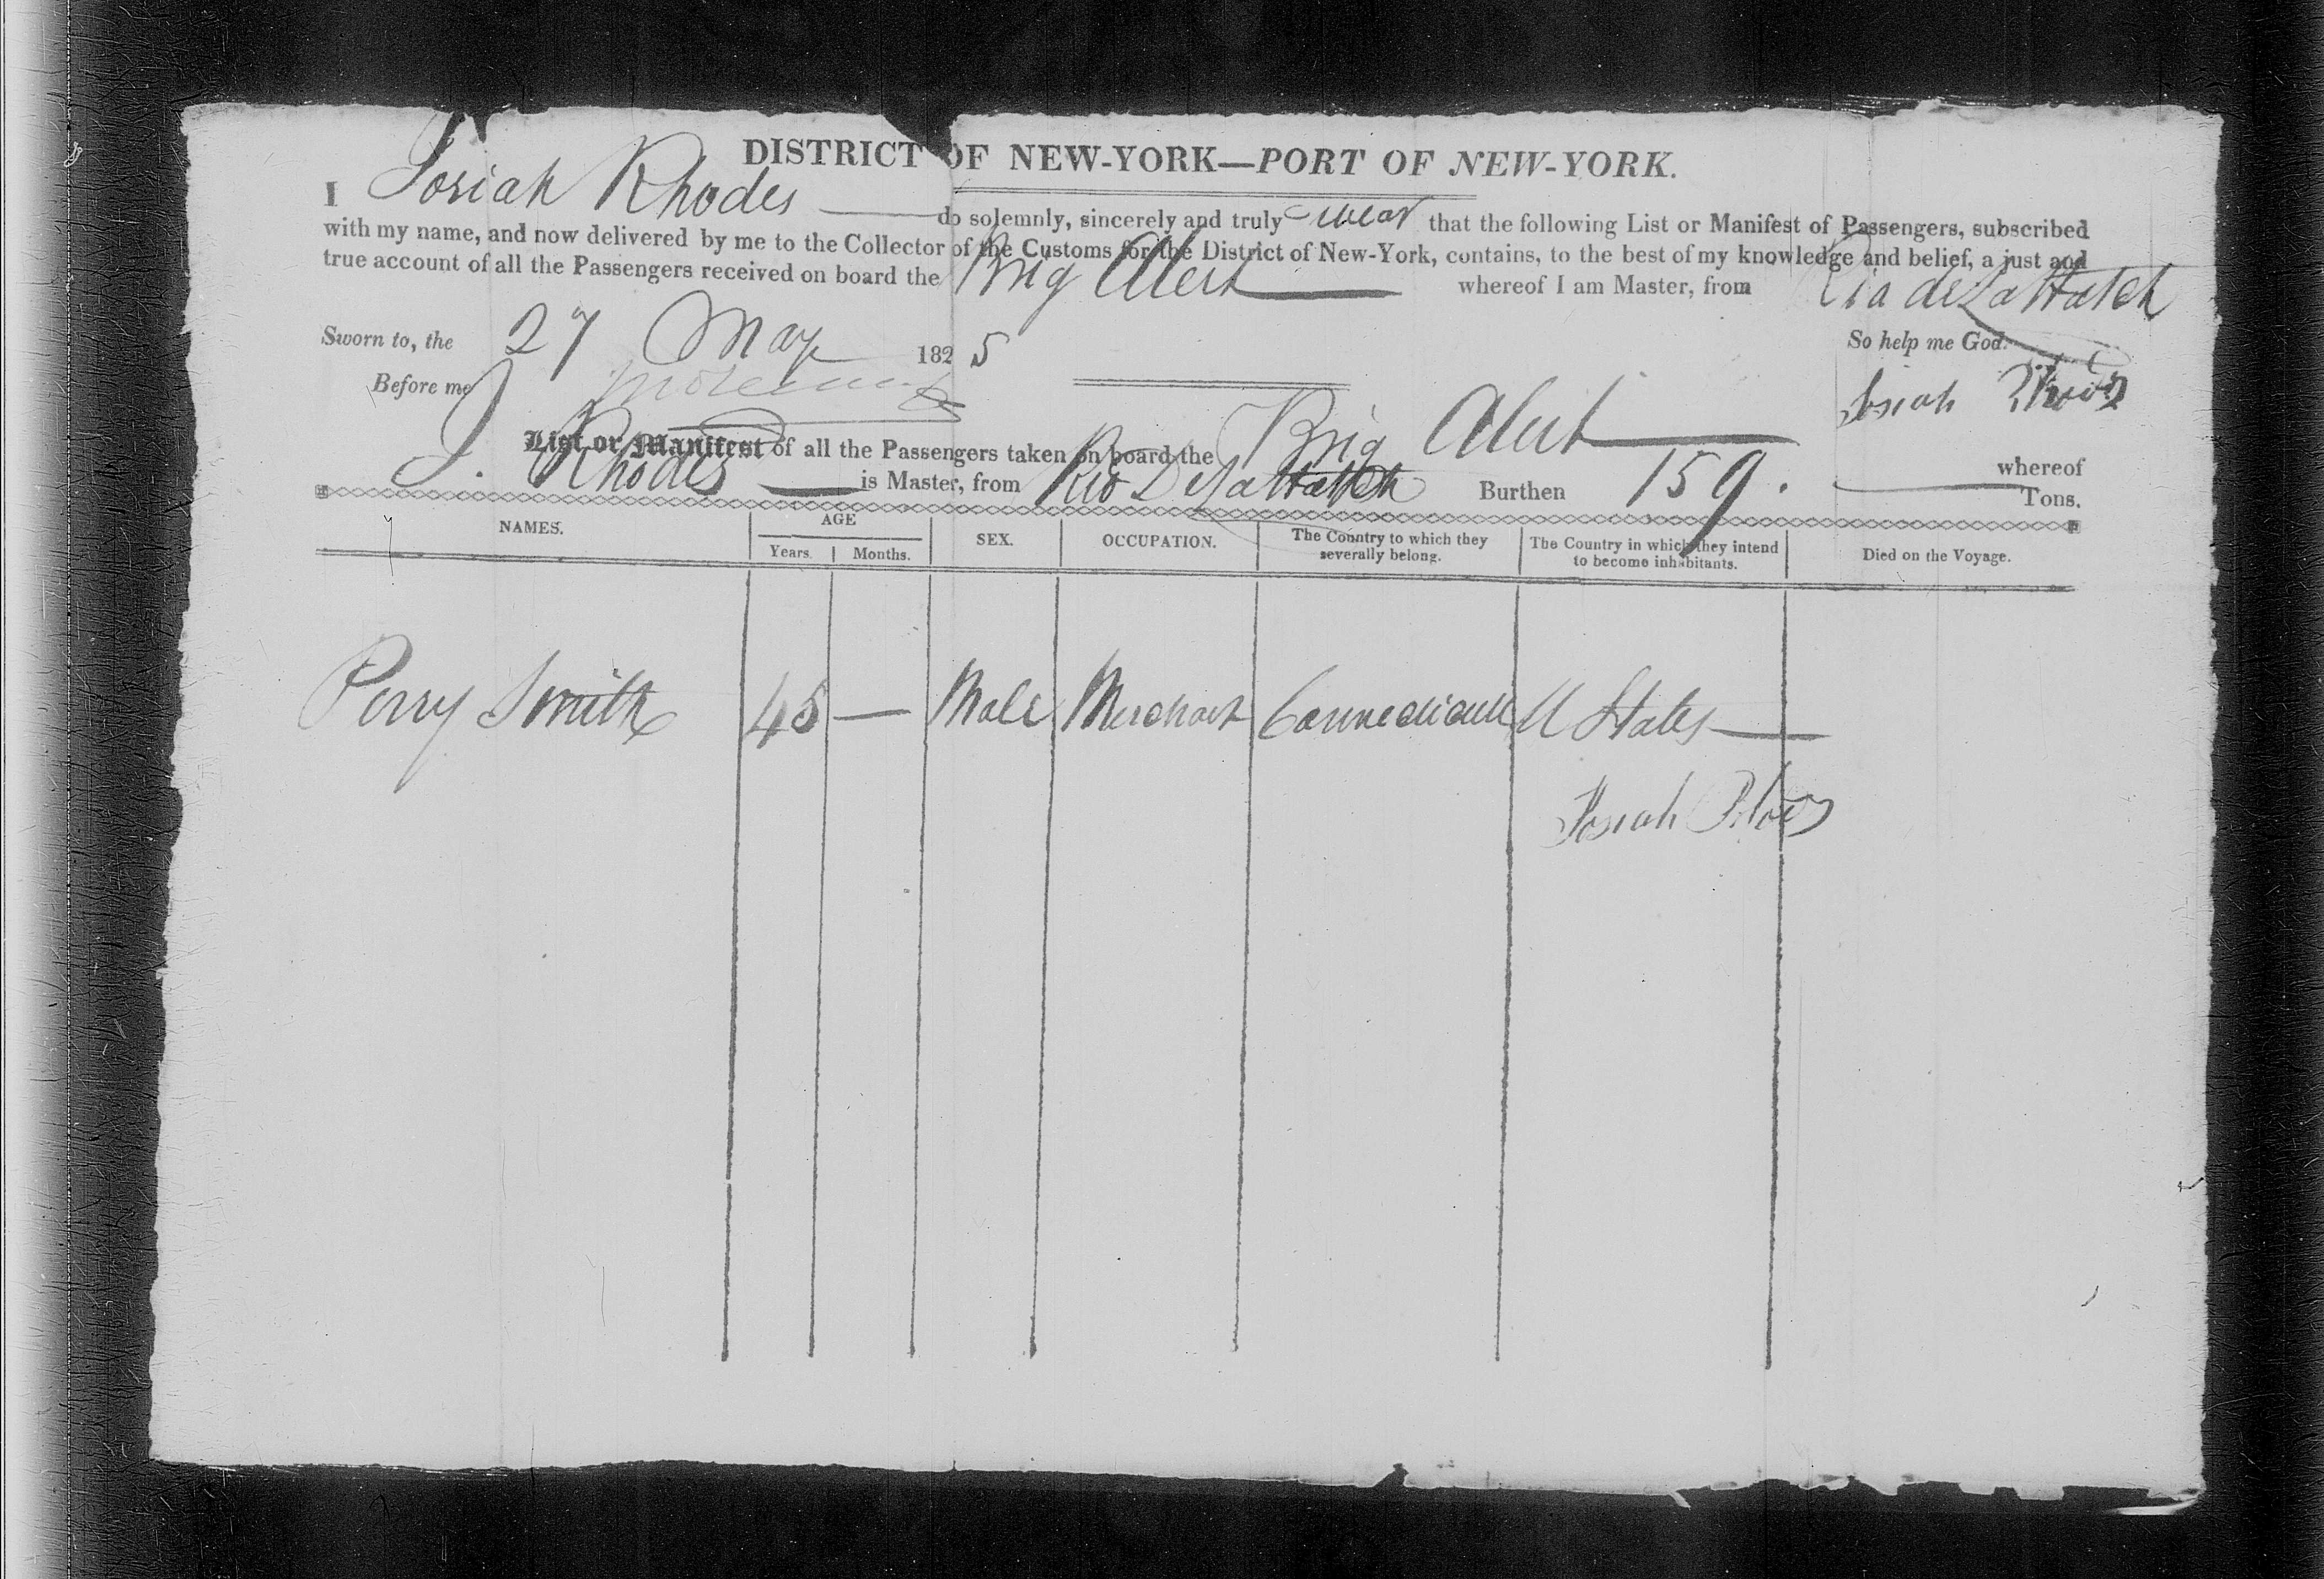 DISTRICT OF NEW-YORK—PORT OF NEW-YORK.
I Josiah Rhodes do solemnly, sincerely and truly swear that the following List or Manifest of Passengers, subscribed
with my name, and now delivered by me to the Collector of the Customs for the District of New-York, contains, to the best of my knowledge and belief, a just and
true account of all the Passengers received on board the Brig Alert whereof I am Master, from Rio de La Hatch
Sworn to, the 27 May 1825 So help me God.
Before me Josiah Rhods
List or Manifest of all the Passengers taken on board the Brig Alert whereof
J. Rhodes is Master, from Rio De La Hatch Burthen 159. Tons.
NAMES. AGE SEX. OCCUPATION. The Country to which they severally belong. The Country in which they intend to become inhabitants. Died on the Voyage.
Years. Months.
Perry Smith 45 — Male Merchant Connecticutt U States
Josiah Rhods